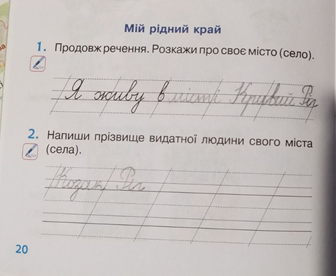 Мій рідний край
1. Продовж речення. Розкажи про своє місто (село).
Я живу в місті Кривий Ріг
2. Напиши прізвище видатної людини свого міста
(села).
Козак Ріг
20